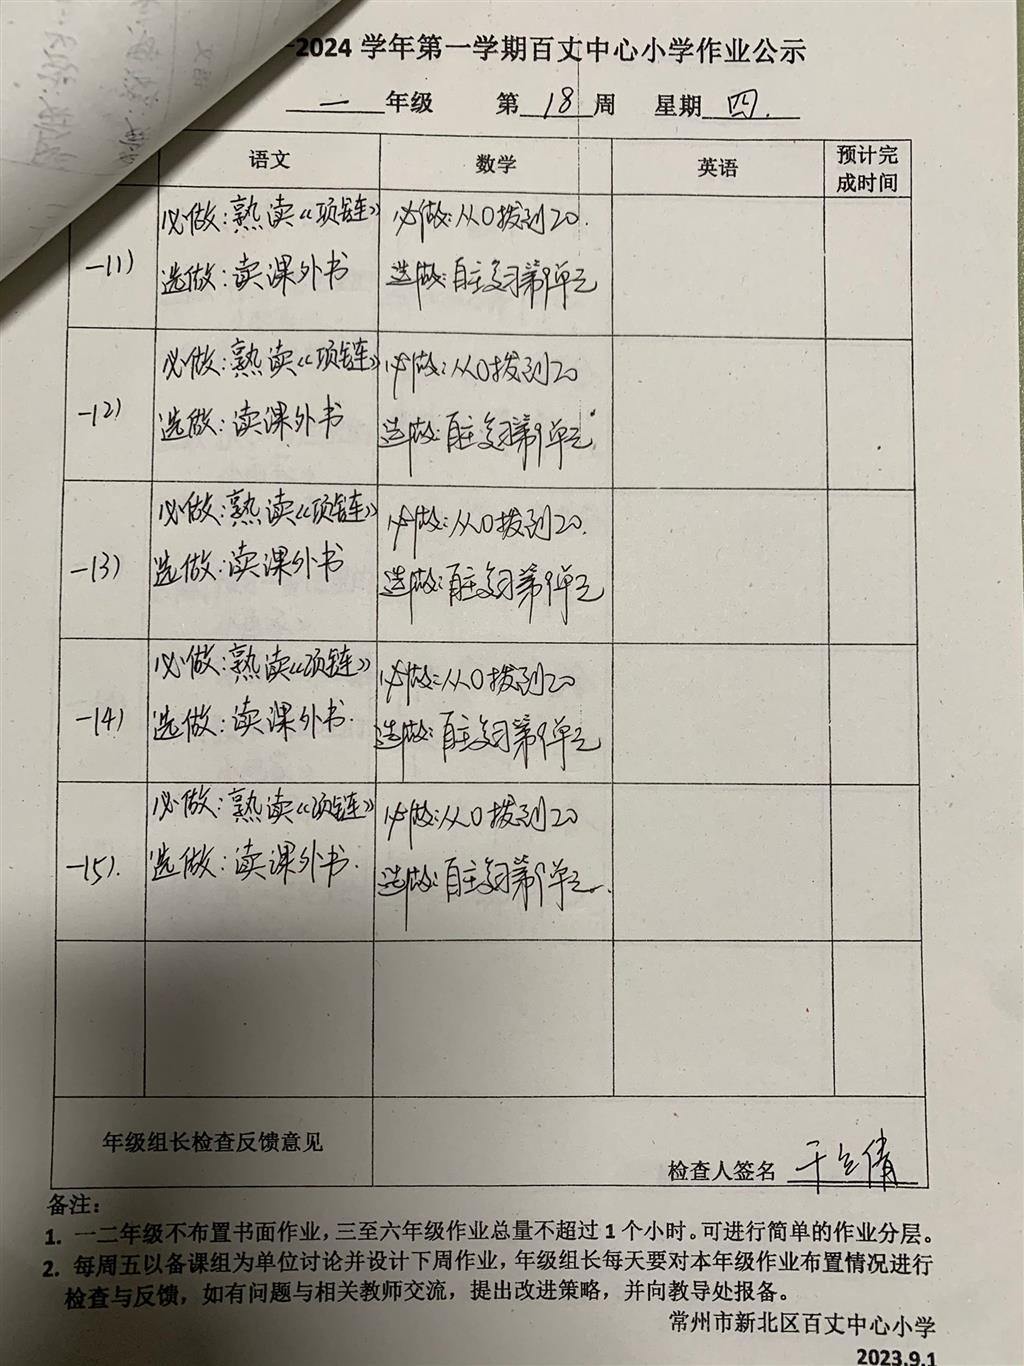 -2024 学年第一学期百丈中心小学作业公示
一 年级 第 18 周 星期 四.
语文 数学 英语 预计完成时间
一(1) 必做:熟读《项链》 必做:从0拨到20.
选做:读课外书 选做:自主复习第9单元
一(2) 必做:熟读《项链》 必做:从0拨到20
选做:读课外书 选做:自主复习第9单元
一(3) 必做:熟读《项链》 必做:从0拨到20.
选做:读课外书 选做:自主复习第9单元
一(4) 必做:熟读《项链》 必做:从0拨到20
选做:读课外书. 选做:自主复习第9单元
一(5). 必做:熟读《项链》 必做:从0拨到20
选做:读课外书. 选做:自主复习第9单元.
年级组长检查反馈意见
检查人签名
备注:
1. 一二年级不布置书面作业,三至六年级作业总量不超过 1 个小时。可进行简单的作业分层。
2. 每周五以备课组为单位讨论并设计下周作业,年级组长每天要对本年级作业布置情况进行
检查与反馈,如有问题与相关教师交流,提出改进策略,并向教导处报备。
常州市新北区百丈中心小学
2023.9.1